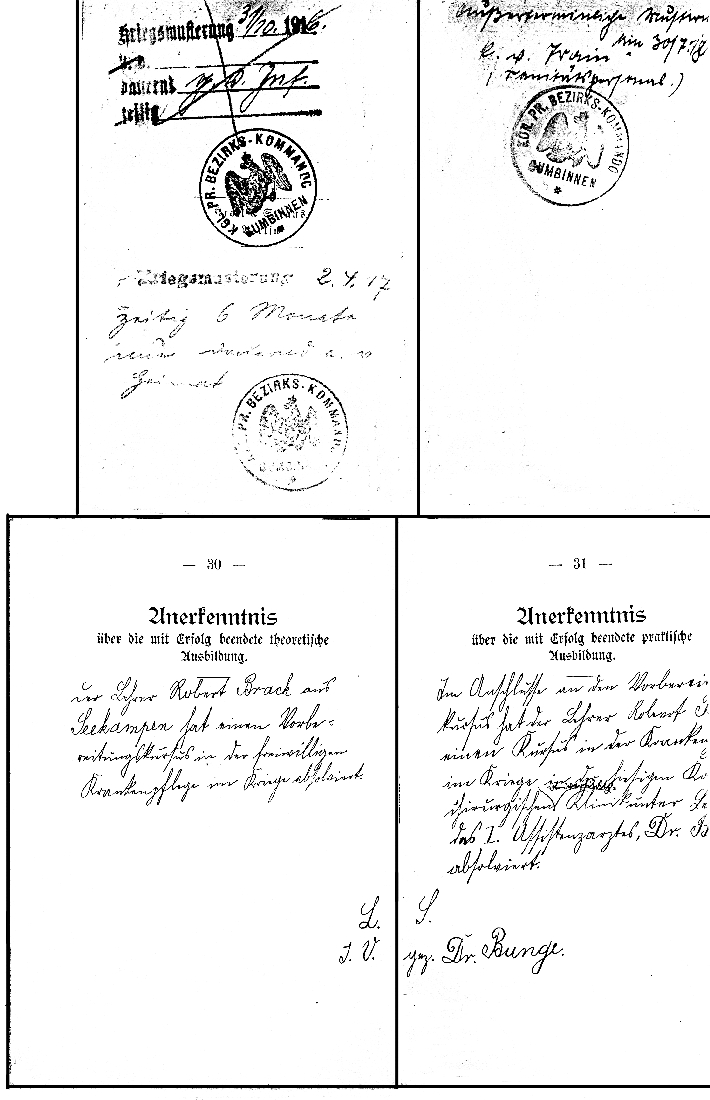 Kriegsmusterung 31/10. 1916.
a. v.
dauernd g. v. Inf.
zeitig
KGL. PR. BEZIRKS-KOMMANDO
GUMBINNEN
Kriegsmusterung 2.4.17
Zeitig 6 Monate
dauernd a. v.
Heimat
PR. BEZIRKS-KOMMANDO
Außerterminliche Muster
am 30/7.17
k. v. Train
(Sanitätspersonal.)
KGL. PR. BEZIRKS-KOMMANDO
GUMBINNEN
— 30 —
Anerkenntnis
über die mit Erfolg beendete theoretische
Ausbildung.
Der Lehrer Robert Brack aus
Seekampen hat einen Vorbe-
reitungskursus in der freiwilligen
Krankenpflege im Kriege absolviert.
L.
I. V.
— 31 —
Anerkenntnis
über die mit Erfolg beendete praktische
Ausbildung.
Im Anschlusse an den Vorberei
kursus hat der Lehrer Robert
einen Kursus in der Kranken
im Kriege in der hiesigen Kö
chirurgischen Klinik unter Le
des I. Assistenzarztes, Dr. B
absolviert.
S.
gez. Dr. Bunge.